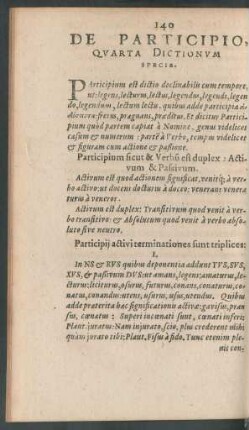 140
DE PARTICIPIO,
QVARTA DICTIONVM
SPECIE.
Participium est dictio declinabilis cum tempore,
ut: legens, lecturus, lectus, legendus, legendi, legen
do, legendum, lectum lectu. quibus adde participia
fretus, prægnans, præditus. Et dicitur Partici-
pium quòd partem capiat à Nomine, genus videlicet
casum & numerum: partē à Verbo, tempus videlicet
& figuram cum actione & passione.
Participium sicut & Verbū est duplex: Acti-
vum & Passivum.
Activum est quod actionem significat, venitq́; à ver-
bo activo: ut docens docturus à doceo: venerans venera
turus à veneror.
Activum est duplex: Transitivum quod venit à ver-
bo transitivo: & Absolutum quod venit à verbo abso-
luto sive neutro.
Participij activi terminationes sunt triplices:
I.
In NS & RVS quibus deponentia addunt TVS, SVS,
XVS, & passivum DVS: ut amans, legens: amaturus, le-
cturus: futurus, conans, conaturus, co-
natus, utens, usurus, usus, utendus, Quibus
adde præterita hac significatione activa: gavisus, pran-
sus, cœnatus: Superi incœnati sunt, cœnati inferi;
Plaut. juratus: Nam injurato, scio, plus credet mihi
quàm jurato tibi: Plaut. Fisus, fido. Tunc etenim ple-
nis cen-